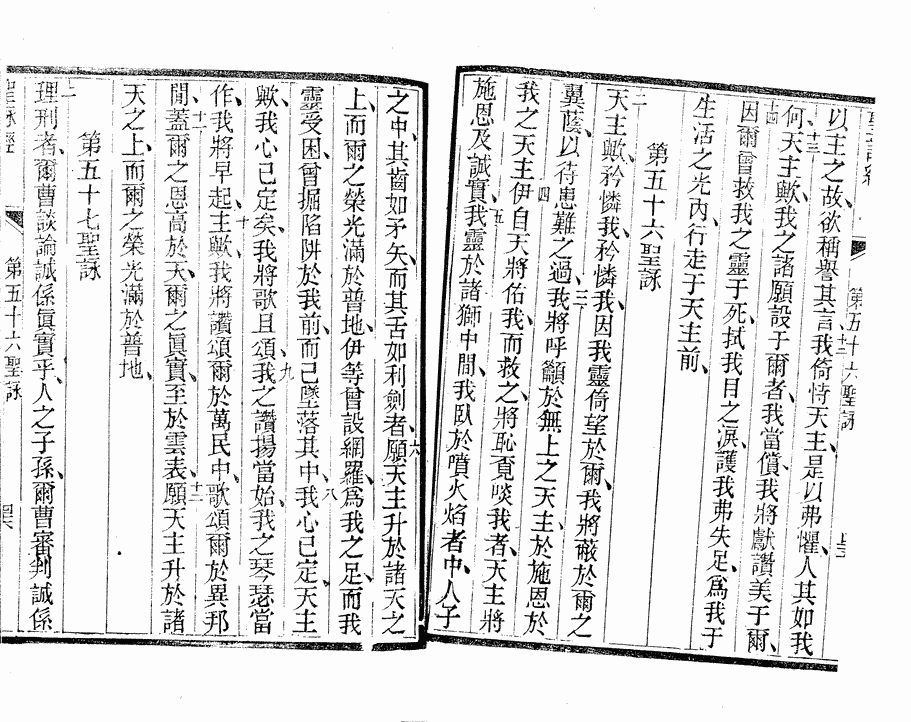 第五十六聖詠
以主之故、欲稱譽其言、我倚恃天主、是以弗懼、人其如我
十二
何、天主歟、我之諸願設于爾者、我當償、我將獻讚美于爾、
十三
因爾曾救我之靈于死、拭我目之淚、護我弗失足、爲我于
十四
生活之光內、行走于天主前、
第五十六聖詠
天主歟、矜憐我、矜憐我、因我靈倚望於爾、我將蔽於爾之
二
翼蔭、以待患難之過、我將呼籲於無上之天主、於施恩於
三
我之天主、伊自天將佑我而救之、將恥寛啖我者、天主將
四
施恩及誠實、我靈於諸獅中間、我臥於噴火焰者中、人子
五
之中、其齒如矛矢、而其舌如利劍者、願天主升於諸天之
六
上、而爾之榮光滿於普地、伊等曾設網羅、爲我之足、而我
靈受困、曾掘陷阱於我前、而已墜落其中、我心已定、天主
八
歟、我心已定矣、我將歌且頌、我之讚揚當始、我之琴瑟當
九
作、我將早起、主歟、我將讚頌爾於萬民中、歌頌爾於異邦
十
間、蓋爾之恩高於天、爾之眞實至於雲表、願天主升於諸
十一
十二
天之上、而爾之榮光滿於普地、
第五十七聖詠
理刑者、爾曹談論誠係眞實乎、人之子孫、爾曹審判誠係
二
聖詠經
第五十六聖詠